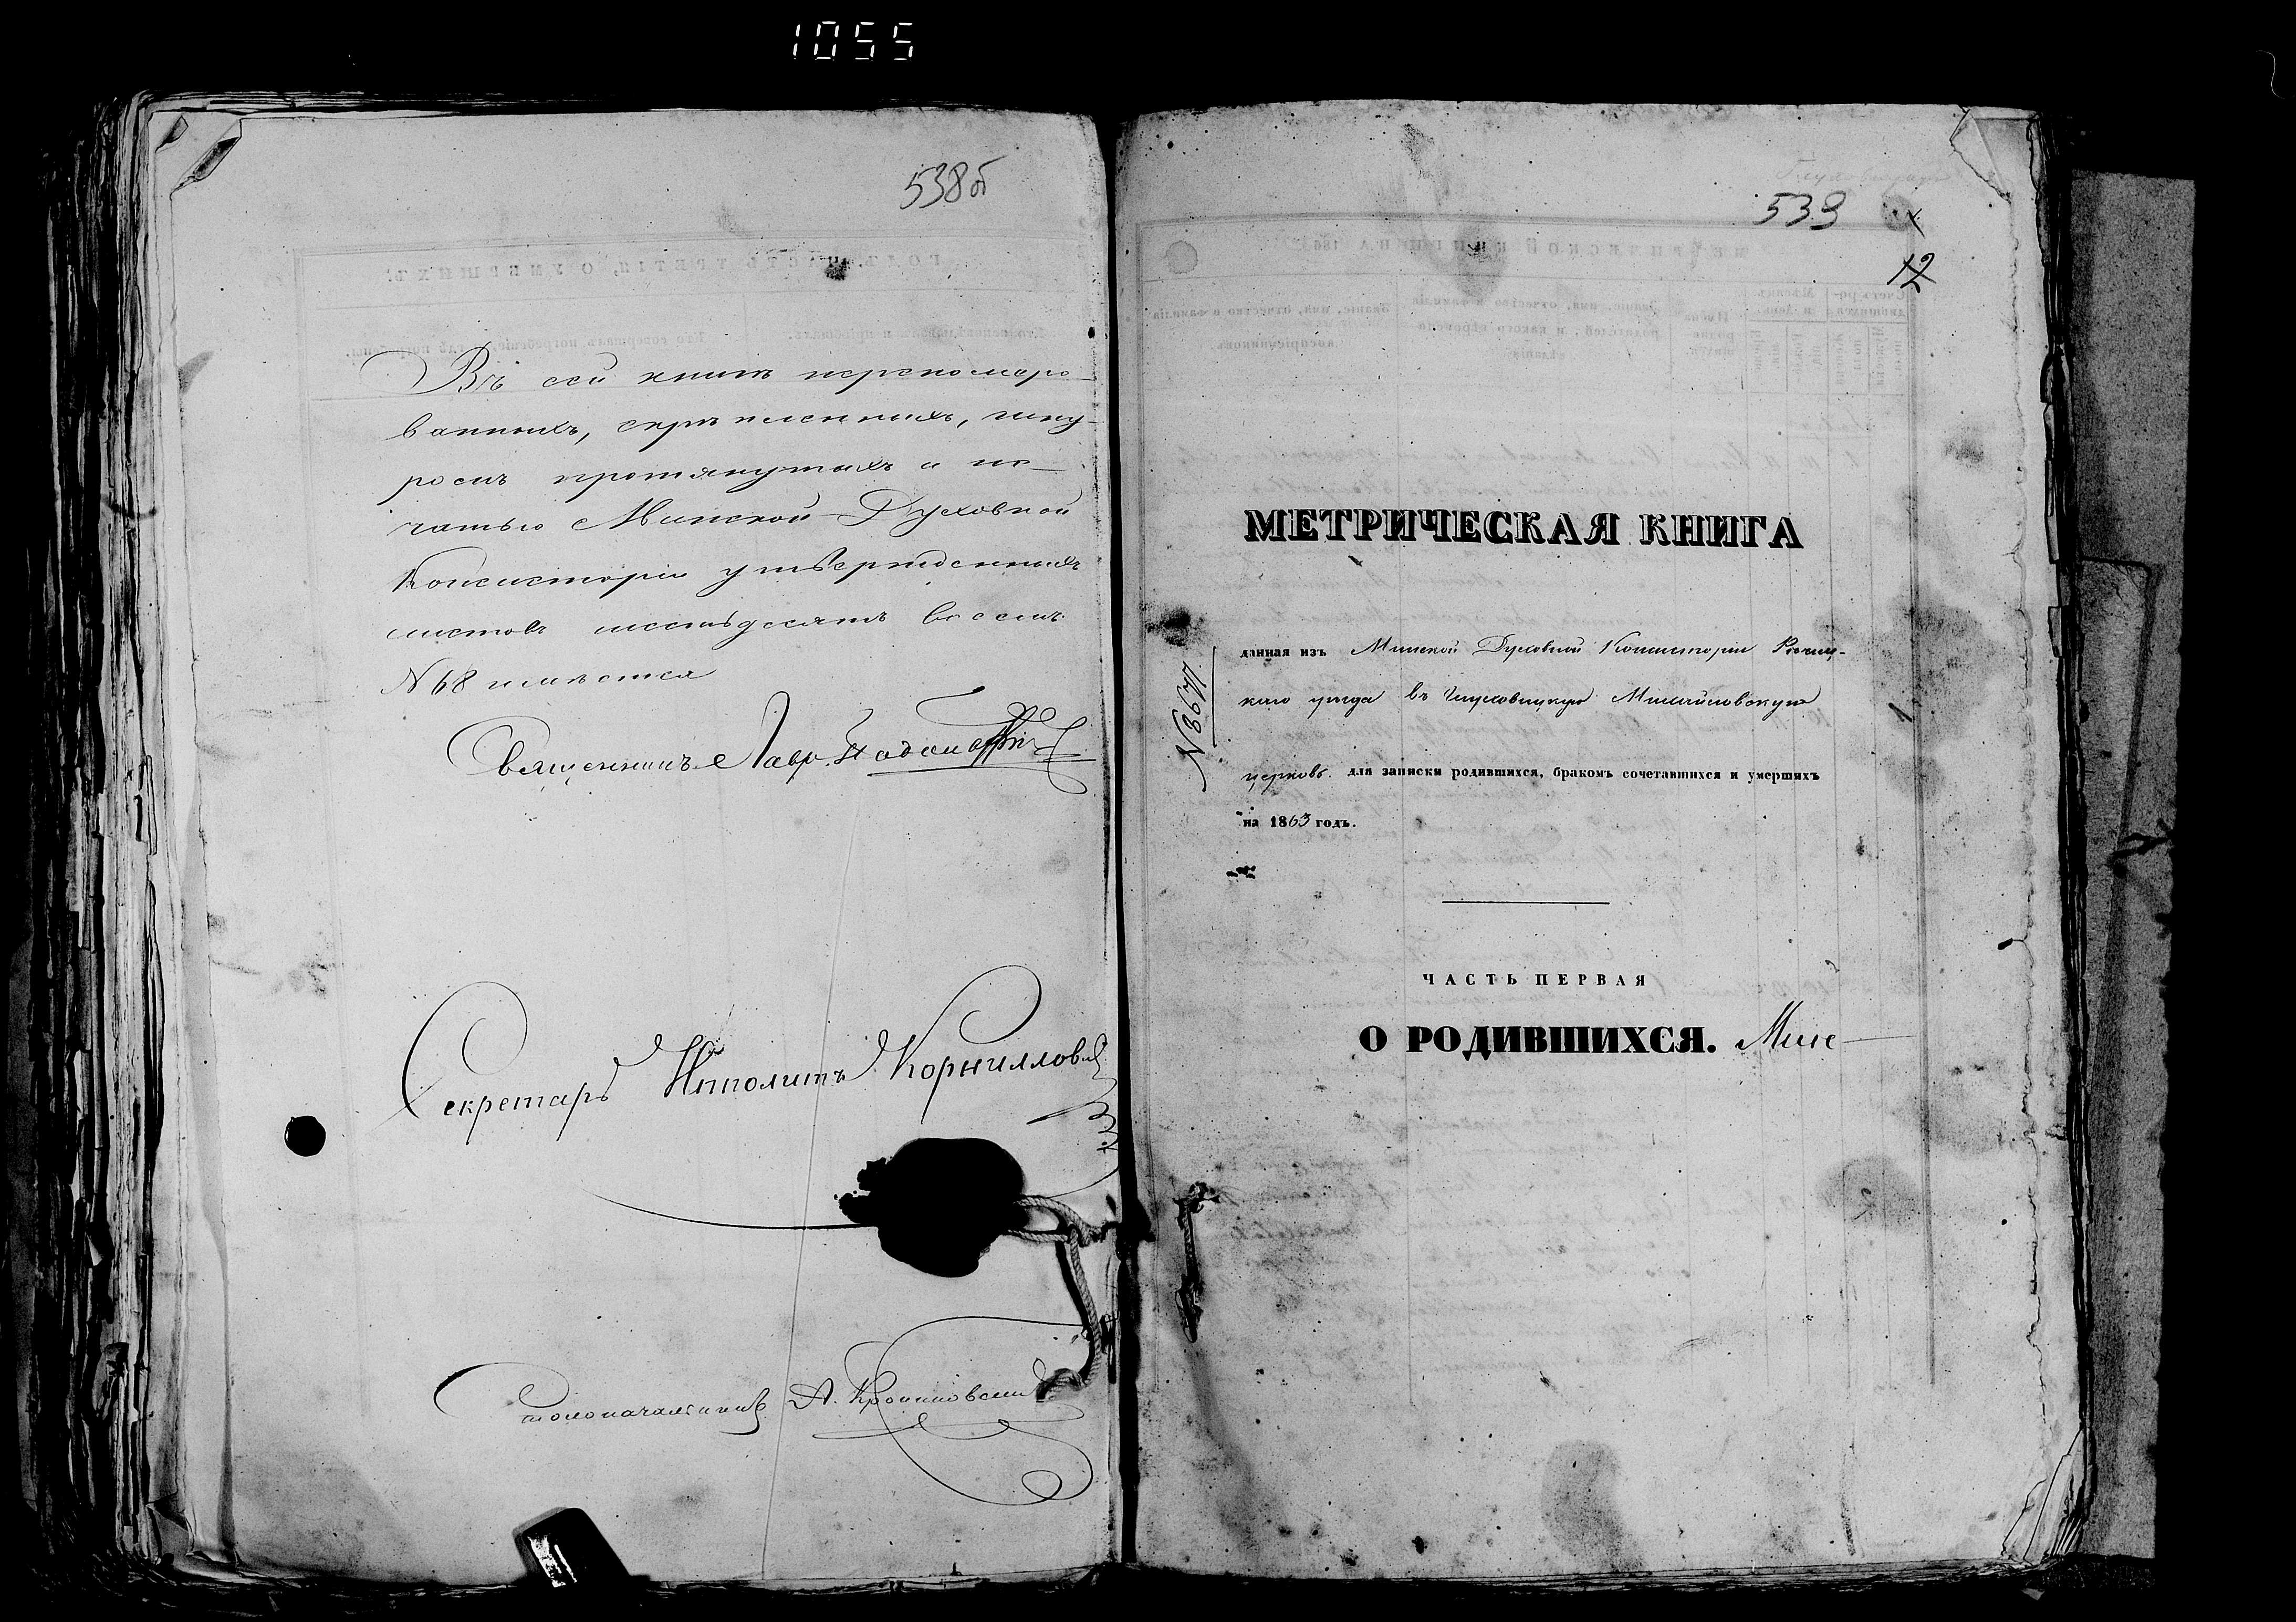 1055
538об
Въ сей книгѣ перенумеро-
ванныхъ, скрѣпленныхъ, шну-
ромъ протянутыхъ и пе-
чатью Минской Духовной
Консисторіи утвержденныхъ
листовъ шестьдесятъ восемь
№ 68 имѣется
Священникъ Лавр.
Секретарь Ипполитъ Корнилловъ
Столоначальникъ А.
539
12
МЕТРИЧЕСКАЯ КНИГА
данная изъ Минской Духовной Консисторіи Рѣчиц-
каго уѣзда въ Глуховицкую Михайловскую
церковь для записки родившихся, бракомъ сочетавшихся и умершихъ
на 1863 годъ.
1
ЧАСТЬ ПЕРВАЯ
О РОДИВШИХСЯ.